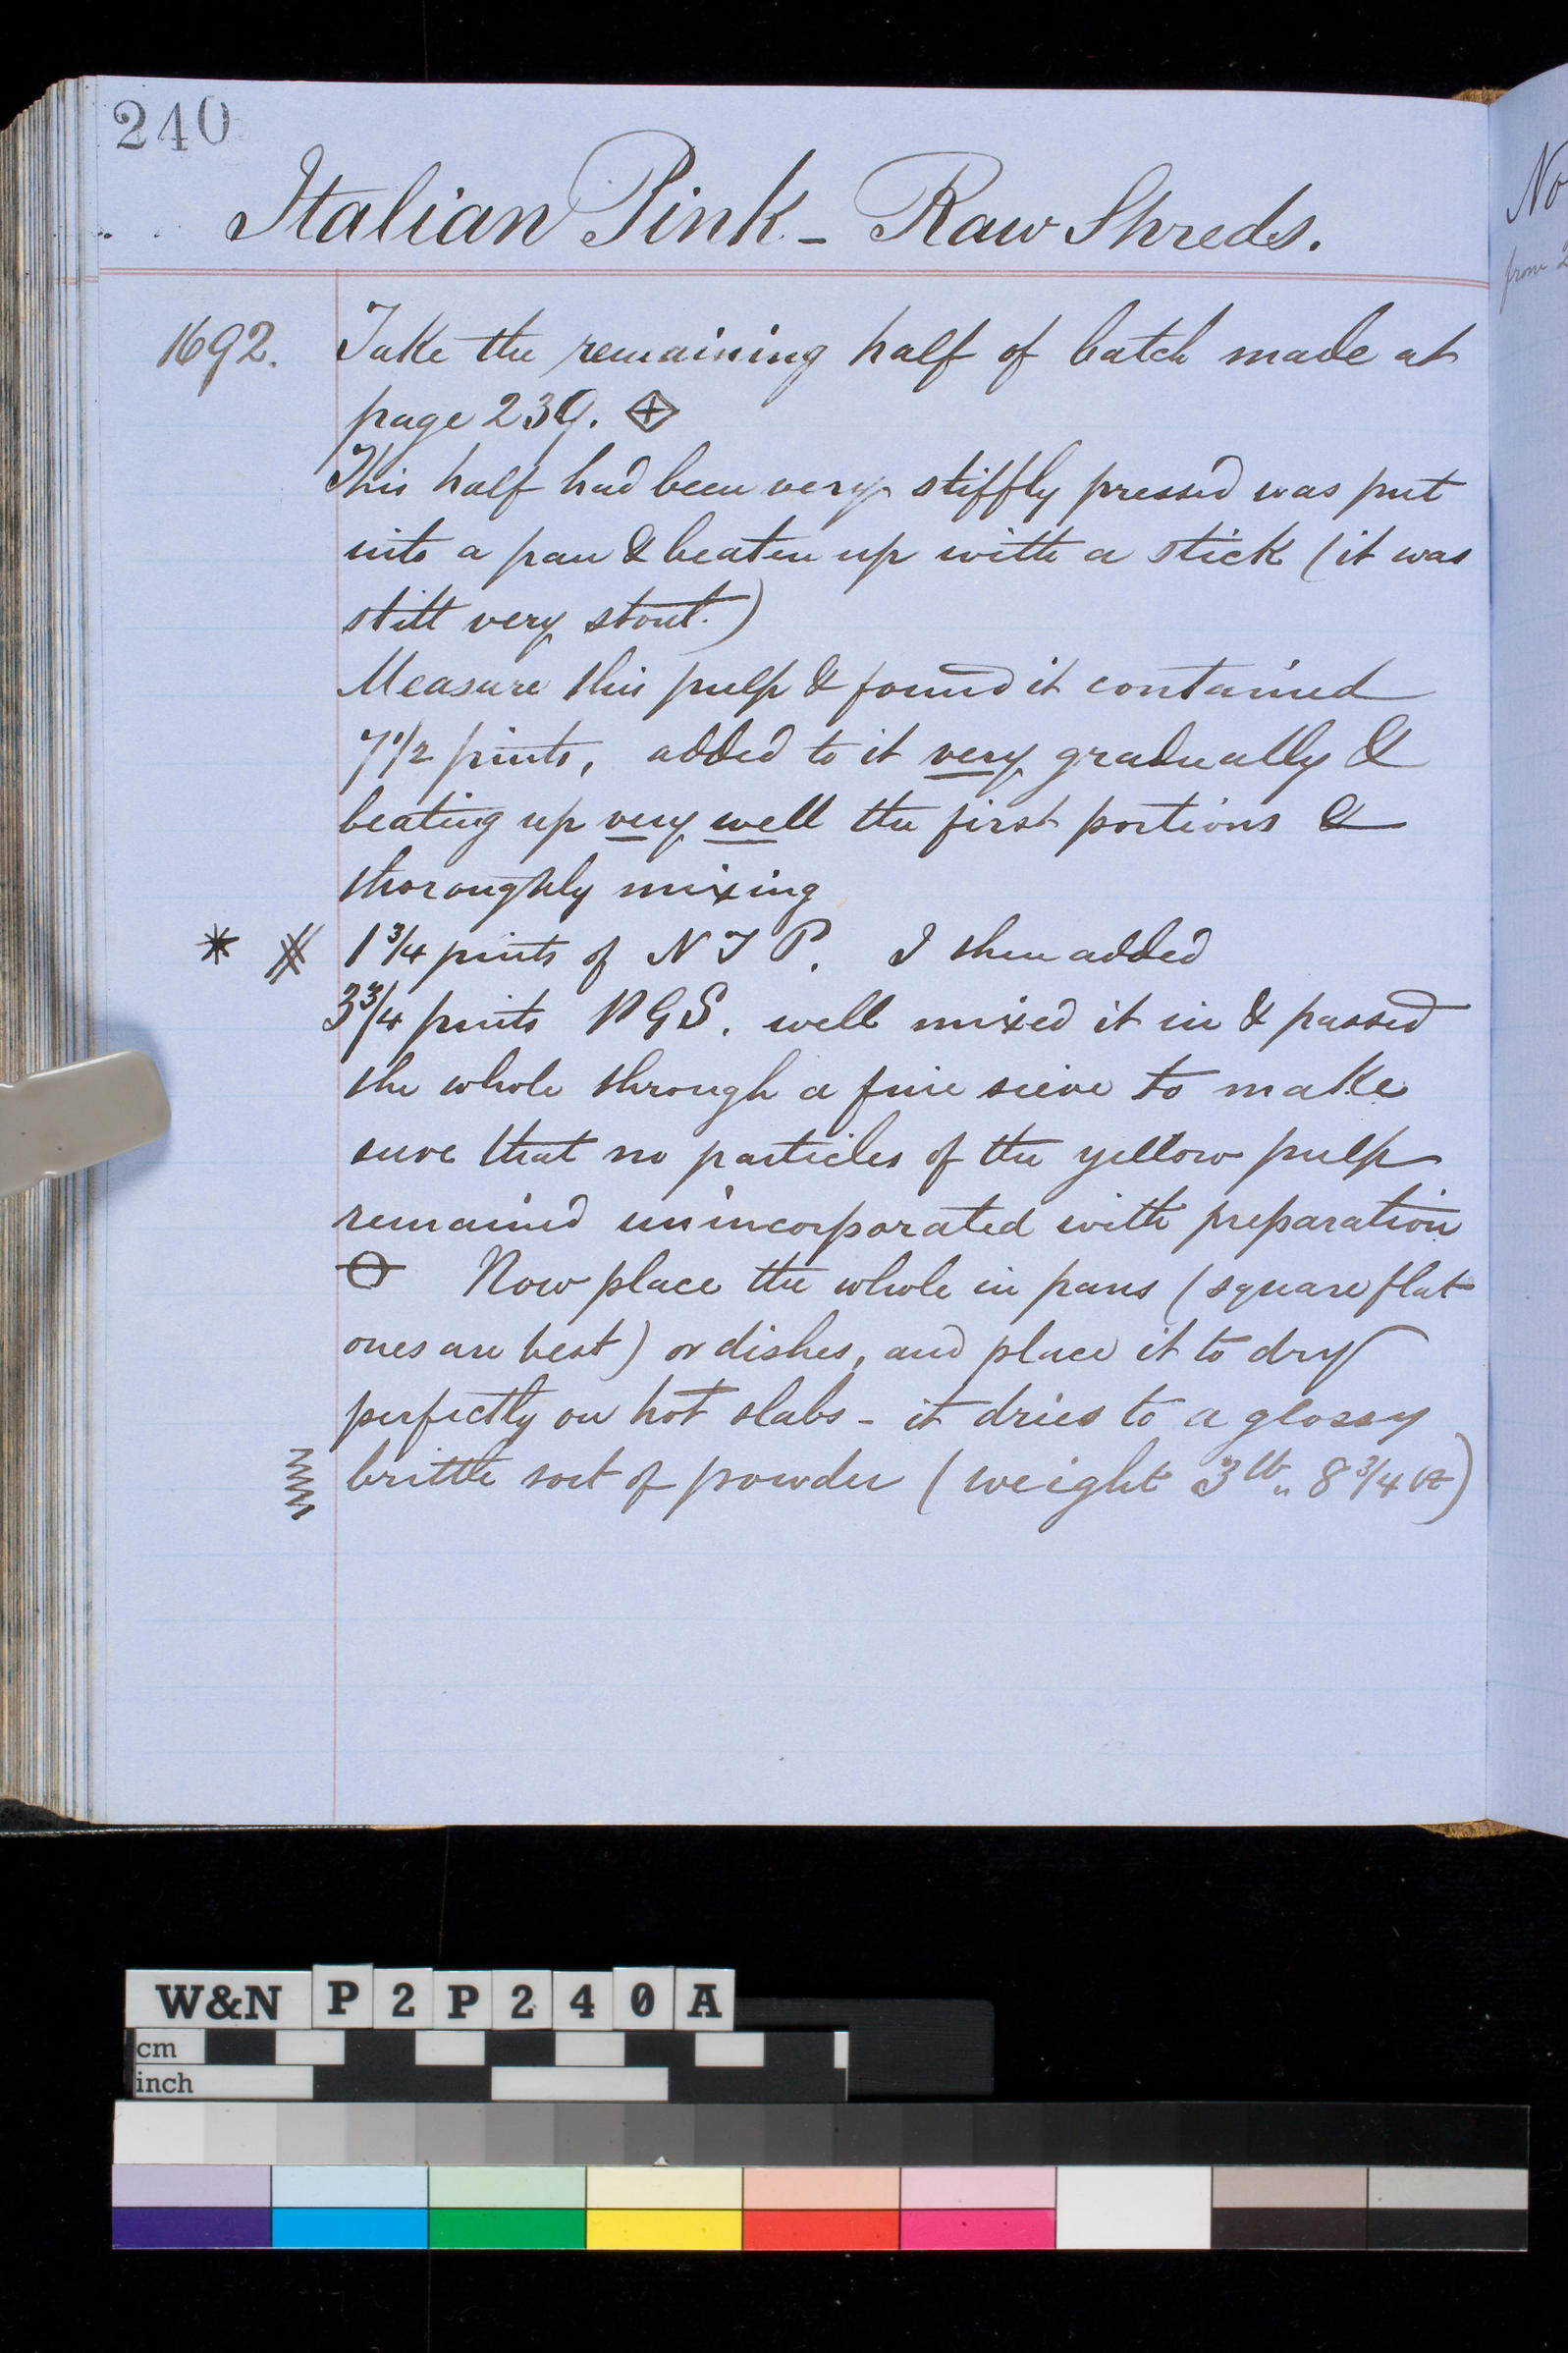 240
Italian Pink - Raw Shreds.
No
from 2
1692. Take the remaining half of batch made at
page 239.
This half had been very stiffly pressed was put
into a pan & beaten up with a stick (it was
still very stout.)
Measure this pulp & found it contained
7 1/2 pints, added to it very gradually &
beating up very well the first portions &
thoroughly mixing
* # 1 3/4 pints of N I P. I then added
3 3/4 pints PGS. well mixed it in & passed
the whole through a fine sieve to make
sure that no particles of the yellow pulp
remained unincorporated with preparation
Now place the whole in pans (square flat
ones are best) or dishes, and place it to dry
perfectly on hot slabs - it dries to a glossy
brittle sort of powder (weight 3 lb " 8 3/4 oz)
W&N P2P240A
cm
inch